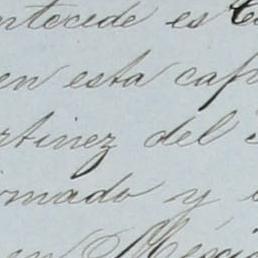 ntecede es C
en esta cap
rtinez del
rmado y
en Méxi